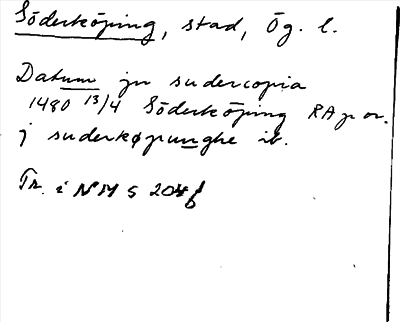 Söderköping, stad, Ög. l.
Datum jn sudercopia
1480 13/4 Söderköping RA p or.
j suderkøpunghe ib.
Tr. i NM s 204f